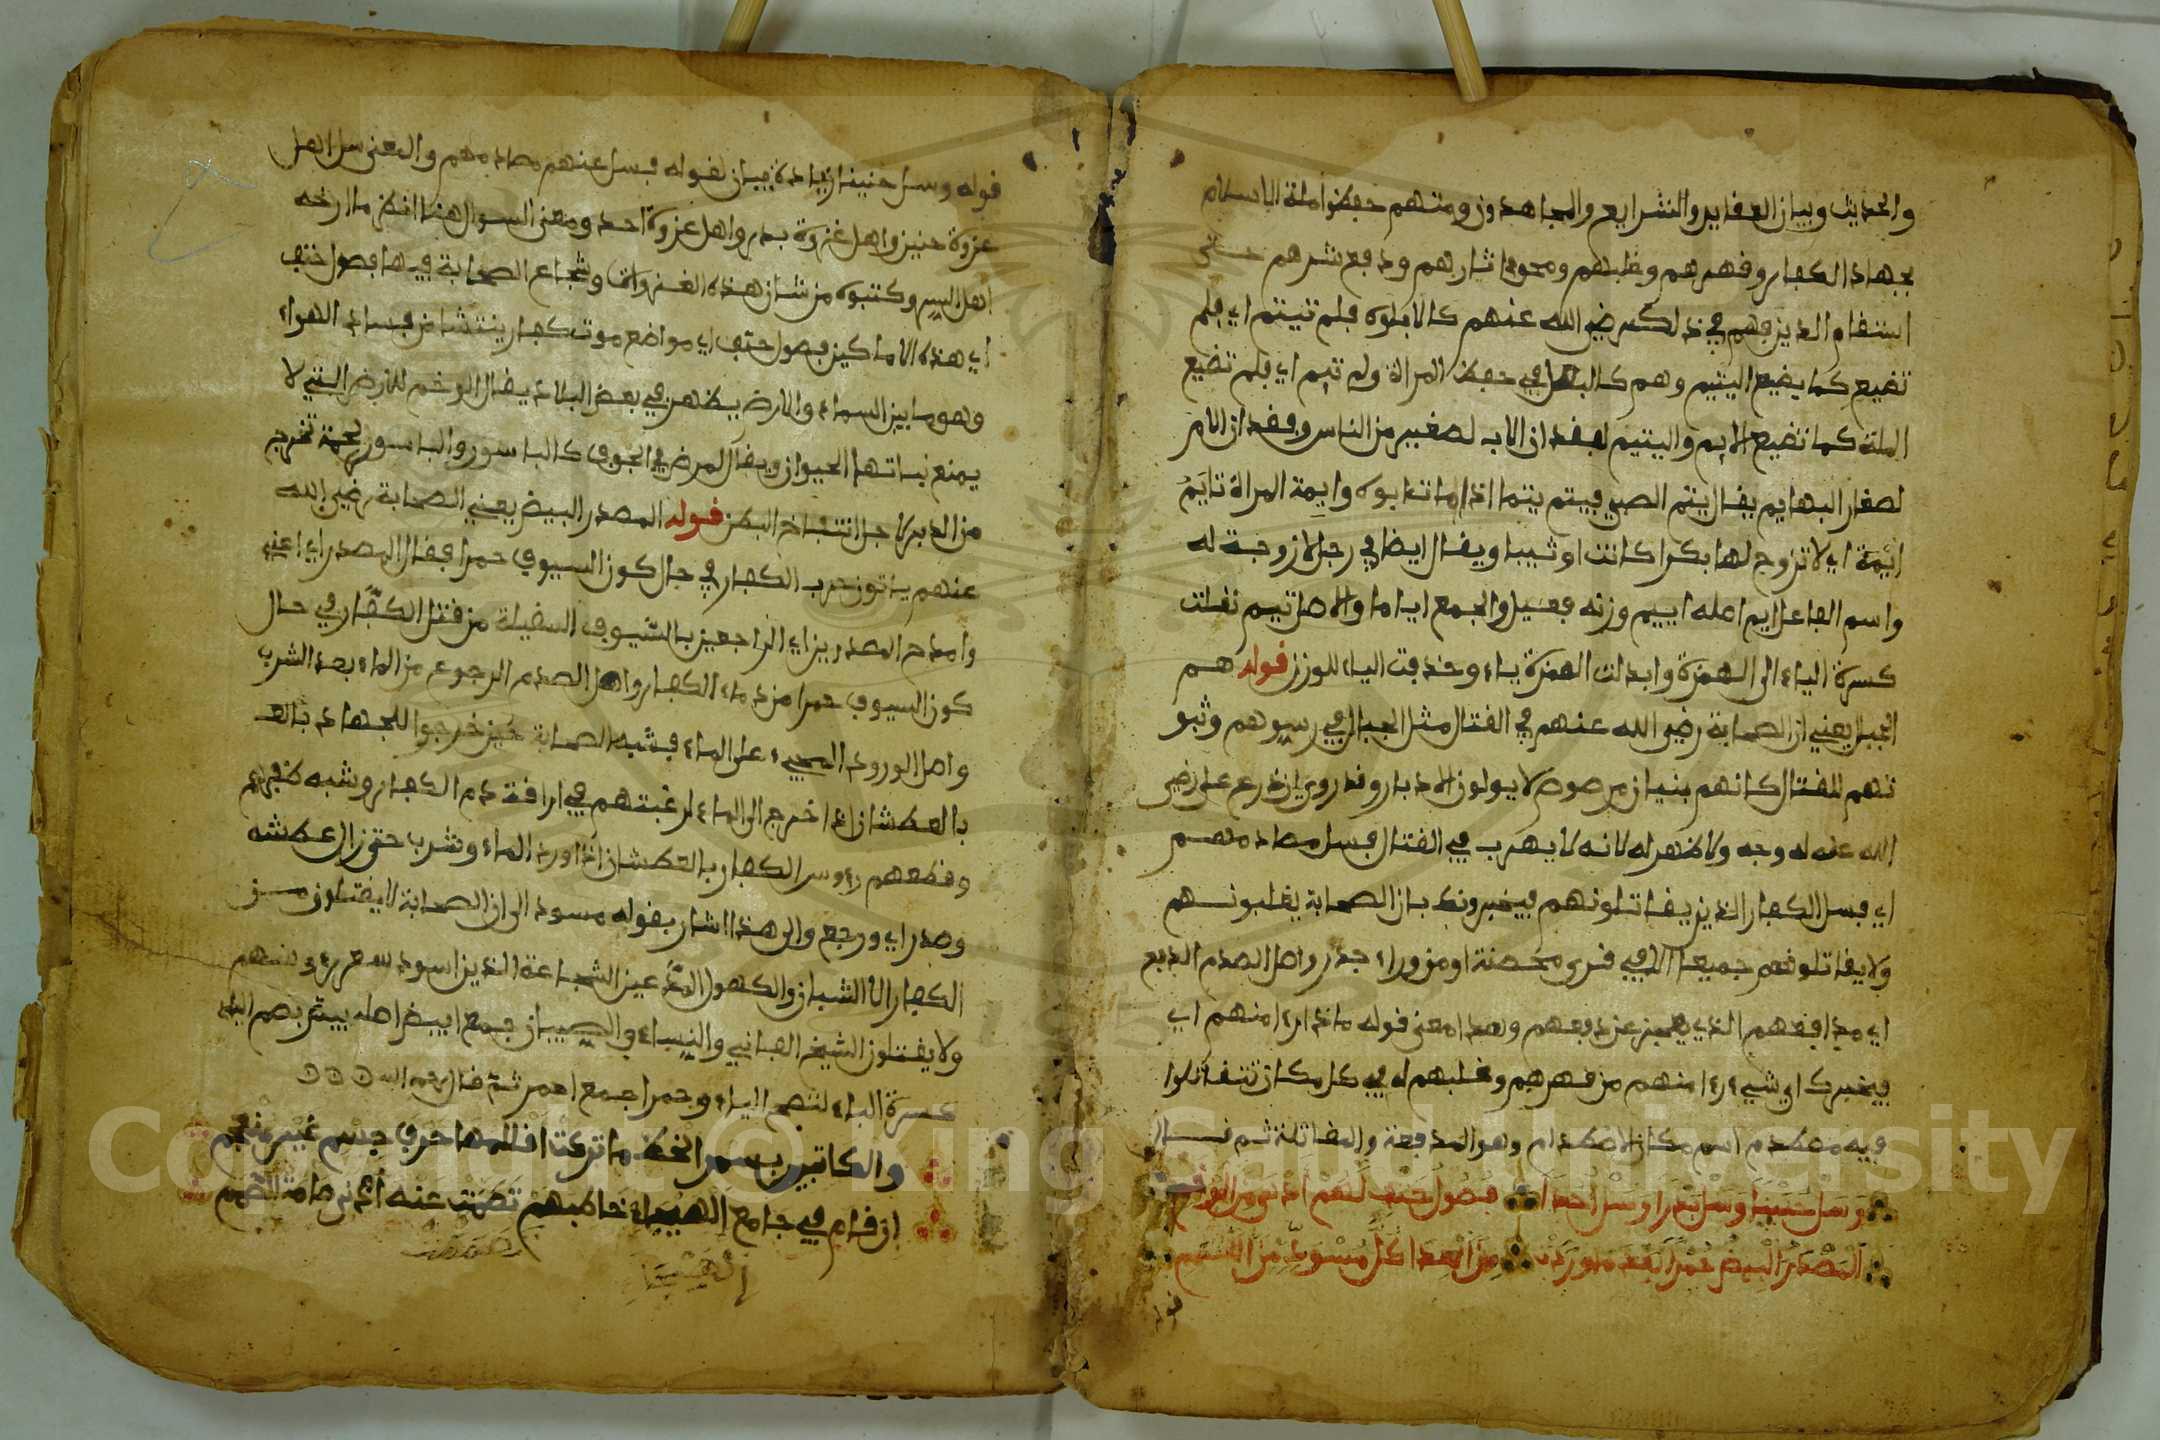 والحديث وبيان العقايد والشرايع والمجاهدون ومنهم حفظوا ملة الاسلام
بجهاد الكفار وقهرهم وغلبهم ومحوا ثارهم ودفع شرهم حتى
استقام الدين فهم في ذلك رضي الله عنهم كالاب لوه فلم تيتم اي فلم
تضيع كما يضيع اليتيم وهم كالبعل في حفظ المراة ولم تيم اي فلم تضيع
الملة كما تضيع الايم واليتيم لفقدان الاب لصغير من الناس وفقدان الام
لصغار البهايم يقال يتم الصبي فيتم يتما اذا مات ابوه وايمة المراة تايم
ايمة اي لا تزوج لها بكرا كانت او ثيبا ويقال ايضا في رجل لا زوجة له
واسم الفاعل ايم اصله اييم وزنه فعيل والجمع اياما والاصل تيم نقلت
كسرة الياء الى الهمزة وابدلت الهمزة ياء وحذفت الياء للوزن قوله هم
الجبل يعني ان الصحابة رضي الله عنهم في القتال مثل الجبال في رسوهم وثبو
تهم للقتال كانهم بنيان مرصوص لا يولون الادبار وقد روي ان درع علي رضي
الله عنه له وجه ولا ظهر له لانه لا يهرب في القتال فسل مصادمهم
اي فسل الكفار الذين يقاتلونهم فيخبرونك بان الصحابة يغلبونهم
ولا يقاتلوهم جميعا الا في قرى محصنة او من وراء جدر واصل الصدم الدفع
اي مدافعهم الذي عن دفعهم وهذا معنى قوله ماذا راء امنهم اي
فيخبرك اي شيء راء منهم من قهرهم وغلبهم له في كل مكان تتقاتلوا
فيه مصطدم اسم مكان الاصطدام وهو المدفعة والمقاتلة ثم قال
وسل حنينا وسل بدرا وسل احدا فصول حتف لهم ادهى من الوخم
المصدر البيض حمرا بعد ما وردت من العدا كل مسود من اللمم
قوله وسل حنينا زيادة بيان لقوله فسل عنهم مصادمهم والمعنى سل اهل
غزوة حنين واهل غزوة بدر واهل غزوة احد ومعنى السوال هنا انظر ما ارخه
اهل السير وكتبوه من شان هذه الغزوات وشجاع الصحابة فيها فصول حتف
اي هذه الاماكن فصول حتف اي مواضع موت كفار ينتشا من فساد الهواء
وهو ما بين السماء والارض يظهر في بعض البلاد يقال الوخم للارض التي لا
يمنع نباتها الحيوان ويقال لمرض في الجوف كالباسور والباسور لحمة تخرج
من الدبر لاجل انتفاخ البطن قوله المصدر البيض يعني الصحابة رضي الله
عنهم ياتون حرب الكفار في حال كون السيوف حمرا فقال المصدر اي اعني
وامدح المصدرين اي الراجعين بالسيوف السقيلة من قتل الكفار في حال
كون السيوف حمرا من دماء الكفار واصل الصدر الرجوع من الماء بعد الشرب
واصل الورود المجيء على الماء فشبه الصحابة حين خرجوا للجهاد بالعـ
بالعطشان اذا خرج الى الماء لرغبتهم في اراقة دم الكفار وشبه ظفرهم
وقطعهم رءوس الكفار بالعطشان اذا ورد الماء وشرب حتى زال عطشه
وصدر اي ورجع والى هذا اشار بقوله مسود الى ان الصحابة لا يقتلون من
الكفار الا الشبان والكهول عين الشجاعة الذين اسود شعر رءوسهم
ولا يقتلون الشيخ الفاني والنساء والصبيان جمع ابيض اصله بيض بضم الياء
كسرة الباء لتصح الياء وحمرا جمع احمر ثم قال رحمه الله
والكاتبين بسمر الخط ما تركت اقلامهم حرف جسم غير منعجم
ان قام في جامع الهيجاء خاطبهم تصممت عنه اذنا صامة الصمم